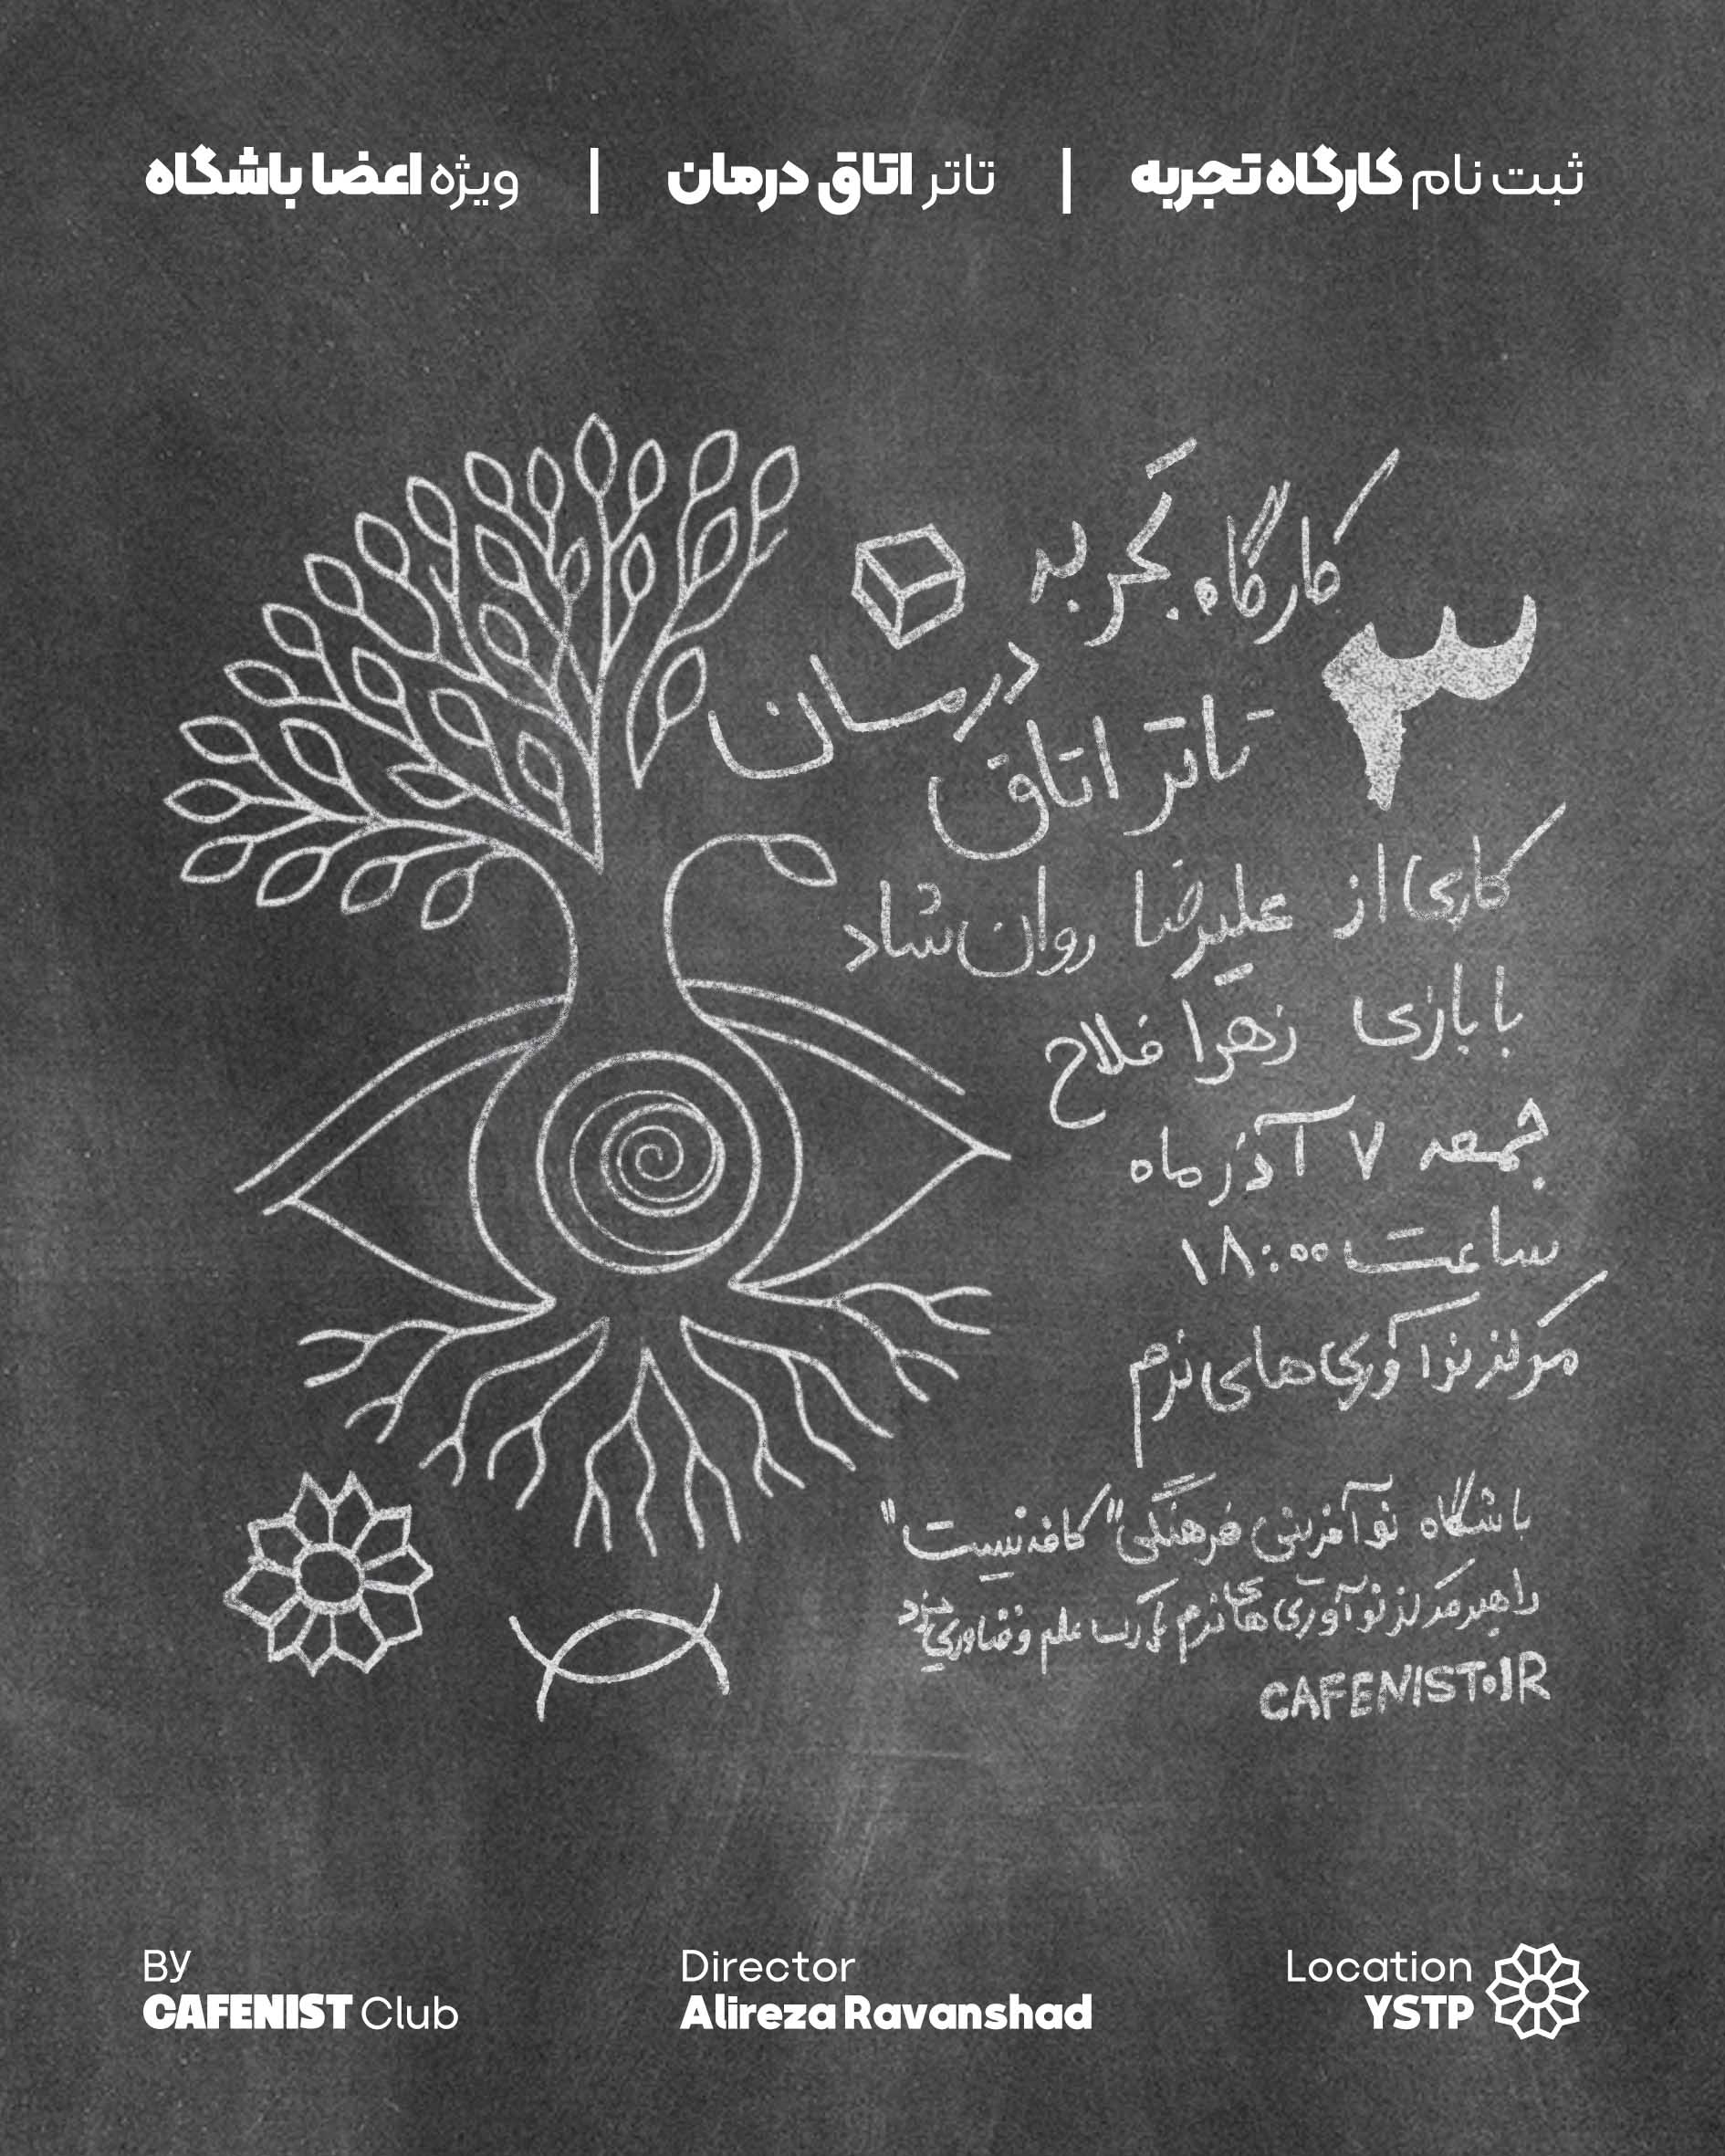 ثبت نام کارگاه تجربه | تاتر اتاق درمان | ویژه اعضا باشگاه
کارگاه تجربه
۳
تاتر اتاق درمان
کاری از علیرضا روان‌شاد
با بازی زهرا فلاح
جمعه ۷ آذر ماه
ساعت ۱۸:۰۰
مرکز نوآوری‌های نرم
باشگاه نوآفرینی فرهنگی "کافه‌نیست"
راهبر مرکز نوآوری های نرم پارک علم و فناوری یزد
CAFENIST.IR
By
CAFENIST Club
Director
Alireza Ravanshad
Location
YSTP